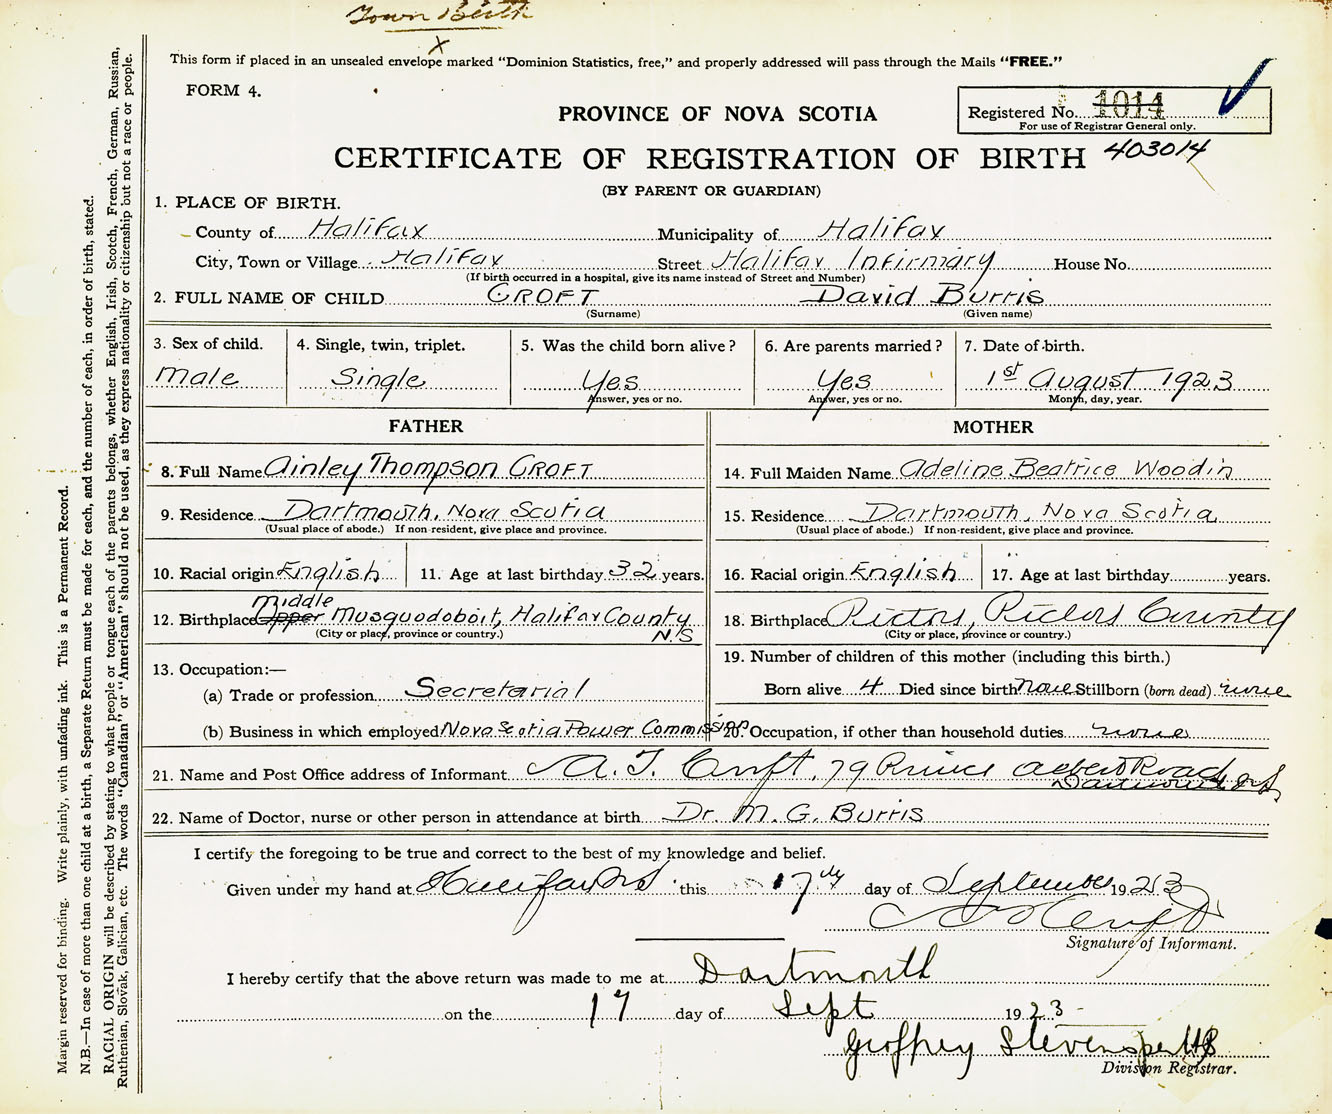 Town Birth
X
This form if placed in an unsealed envelope marked "Dominion Statistics, free," and properly addressed will pass through the Mails "FREE."
FORM 4.
PROVINCE OF NOVA SCOTIA
Registered No. 1014
For use of Registrar General only.
CERTIFICATE OF REGISTRATION OF BIRTH 403014
(BY PARENT OR GUARDIAN)
1. PLACE OF BIRTH.
County of Halifax Municipality of Halifax
City, Town or Village Halifax Street Halifax Infirmary House No.
(If birth occurred in a hospital, give its name instead of Street and Number)
2. FULL NAME OF CHILD CROFT David Burris
(Surname) (Given name)
3. Sex of child. 4. Single, twin, triplet. 5. Was the child born alive? 6. Are parents married? 7. Date of birth.
Male Single Yes Yes 1st August 1923
Answer, yes or no. Answer, yes or no. Month, day, year.
FATHER MOTHER
8. Full Name Ainley Thompson CROFT 14. Full Maiden Name Adeline Beatrice Woodin
9. Residence Dartmouth, Nova Scotia 15. Residence Dartmouth, Nova Scotia
(Usual place of abode.) If non-resident, give place and province. (Usual place of abode.) If non-resident, give place and province.
10. Racial origin English 11. Age at last birthday 32 years. 16. Racial origin English 17. Age at last birthday years.
Middle
12. Birthplace Upper Musquodoboit, Halifax County 18. Birthplace Pictou, Pictou County
(City or place, province or country.) N.S (City or place, province or country.)
13. Occupation:— 19. Number of children of this mother (including this birth.)
(a) Trade or profession Secretarial Born alive 4 Died since birth none Stillborn (born dead) none
(b) Business in which employed Nova Scotia Power Commission 20. Occupation, if other than household duties none
21. Name and Post Office address of Informant A. T. Croft, 79 Prince Albert Road
Dartmouth N.S.
22. Name of Doctor, nurse or other person in attendance at birth Dr. M. G. Burris
I certify the foregoing to be true and correct to the best of my knowledge and belief.
Given under my hand at Halifax NS this 17th day of September 1923
A T Croft
Signature of Informant.
I hereby certify that the above return was made to me at Dartmouth
on the 17 day of Sept 1923
Geoffrey Stevens per
Division Registrar.
Margin reserved for binding. Write plainly, with unfading ink. This is a Permanent Record.
N.B.—In case of more than one child at a birth, a Separate Return must be made for each, and the number of each, in order of birth, stated.
RACIAL ORIGIN will be described by stating to what people or tongue each of the parents belongs, whether English, Irish, Scotch, French, German, Russian,
Ruthenian, Slovak, Galician, etc. The words "Canadian" or "American" should not be used, as they express nationality or citizenship but not a race or people.